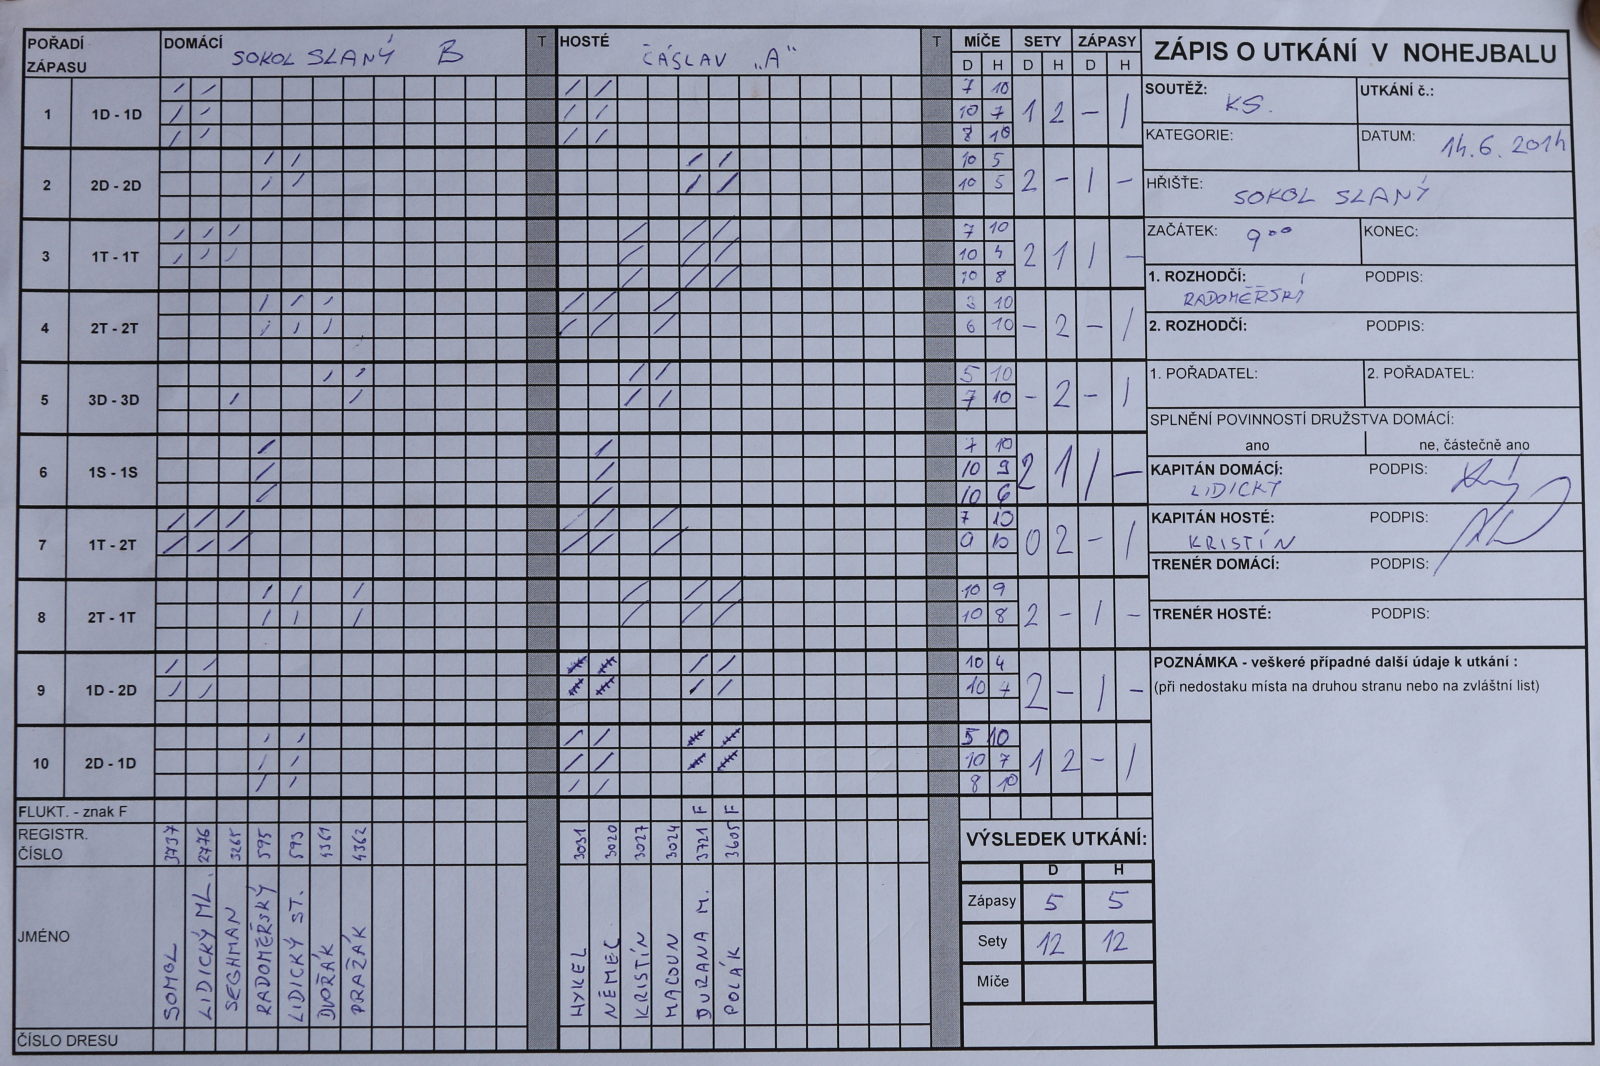 POŘADÍ ZÁPASU DOMÁCÍ SOKOL SLANÝ B T HOSTÉ ČÁSLAV „A" T MÍČE SETY ZÁPASY
D H D H D H
1 1D - 1D 7 10 1 2 - 1
10 7
8 10
2 2D - 2D 10 5 2 - 1 -
10 5
3 1T - 1T 7 10 2 1 1 -
10 4
10 8
4 2T - 2T 3 10 - 2 - 1
6 10
5 3D - 3D 5 10 - 2 - 1
7 10
6 1S - 1S 7 10 2 1 1 -
10 9
10 6
7 1T - 2T 7 10 0 2 - 1
9 10
8 2T - 1T 10 9 2 - 1 -
10 8
9 1D - 2D 10 4 2 - 1 -
10 7
10 2D - 1D 5 10 1 2 - 1
10 7
8 10
FLUKT. - znak F F F
REGISTR. ČÍSLO 3737 2776 3265 595 593 4361 4362 3031 3020 3027 3024 3721 3605
JMÉNO SOMOL LIDICKÝ ML. SEGHMAN RADOMĚŘSKÝ LIDICKÝ ST. DVOŘÁK PRAŽÁK HYKEL NĚMEC KRISTÍN MACOUN DURANA M. POLÁK
ČÍSLO DRESU
VÝSLEDEK UTKÁNÍ:
D H
Zápasy 5 5
Sety 12 12
Míče
ZÁPIS O UTKÁNÍ V NOHEJBALU
SOUTĚŽ: KS. UTKÁNÍ č.:
KATEGORIE: DATUM: 14.6.2014
HŘIŠTE: SOKOL SLANÝ
ZAČÁTEK: 9⁰⁰ KONEC:
1. ROZHODČÍ: RADOMĚŘSKÍ PODPIS:
2. ROZHODČÍ: PODPIS:
1. POŘADATEL: 2. POŘADATEL:
SPLNĚNÍ POVINNOSTÍ DRUŽSTVA DOMÁCÍ:
ano ne, částečně ano
KAPITÁN DOMÁCÍ: LIDICKÝ PODPIS:
KAPITÁN HOSTÉ: KRISTÍN PODPIS:
TRENÉR DOMÁCÍ: PODPIS:
TRENÉR HOSTÉ: PODPIS:
POZNÁMKA - veškeré případné další údaje k utkání :
(při nedostaku místa na druhou stranu nebo na zvláštní list)